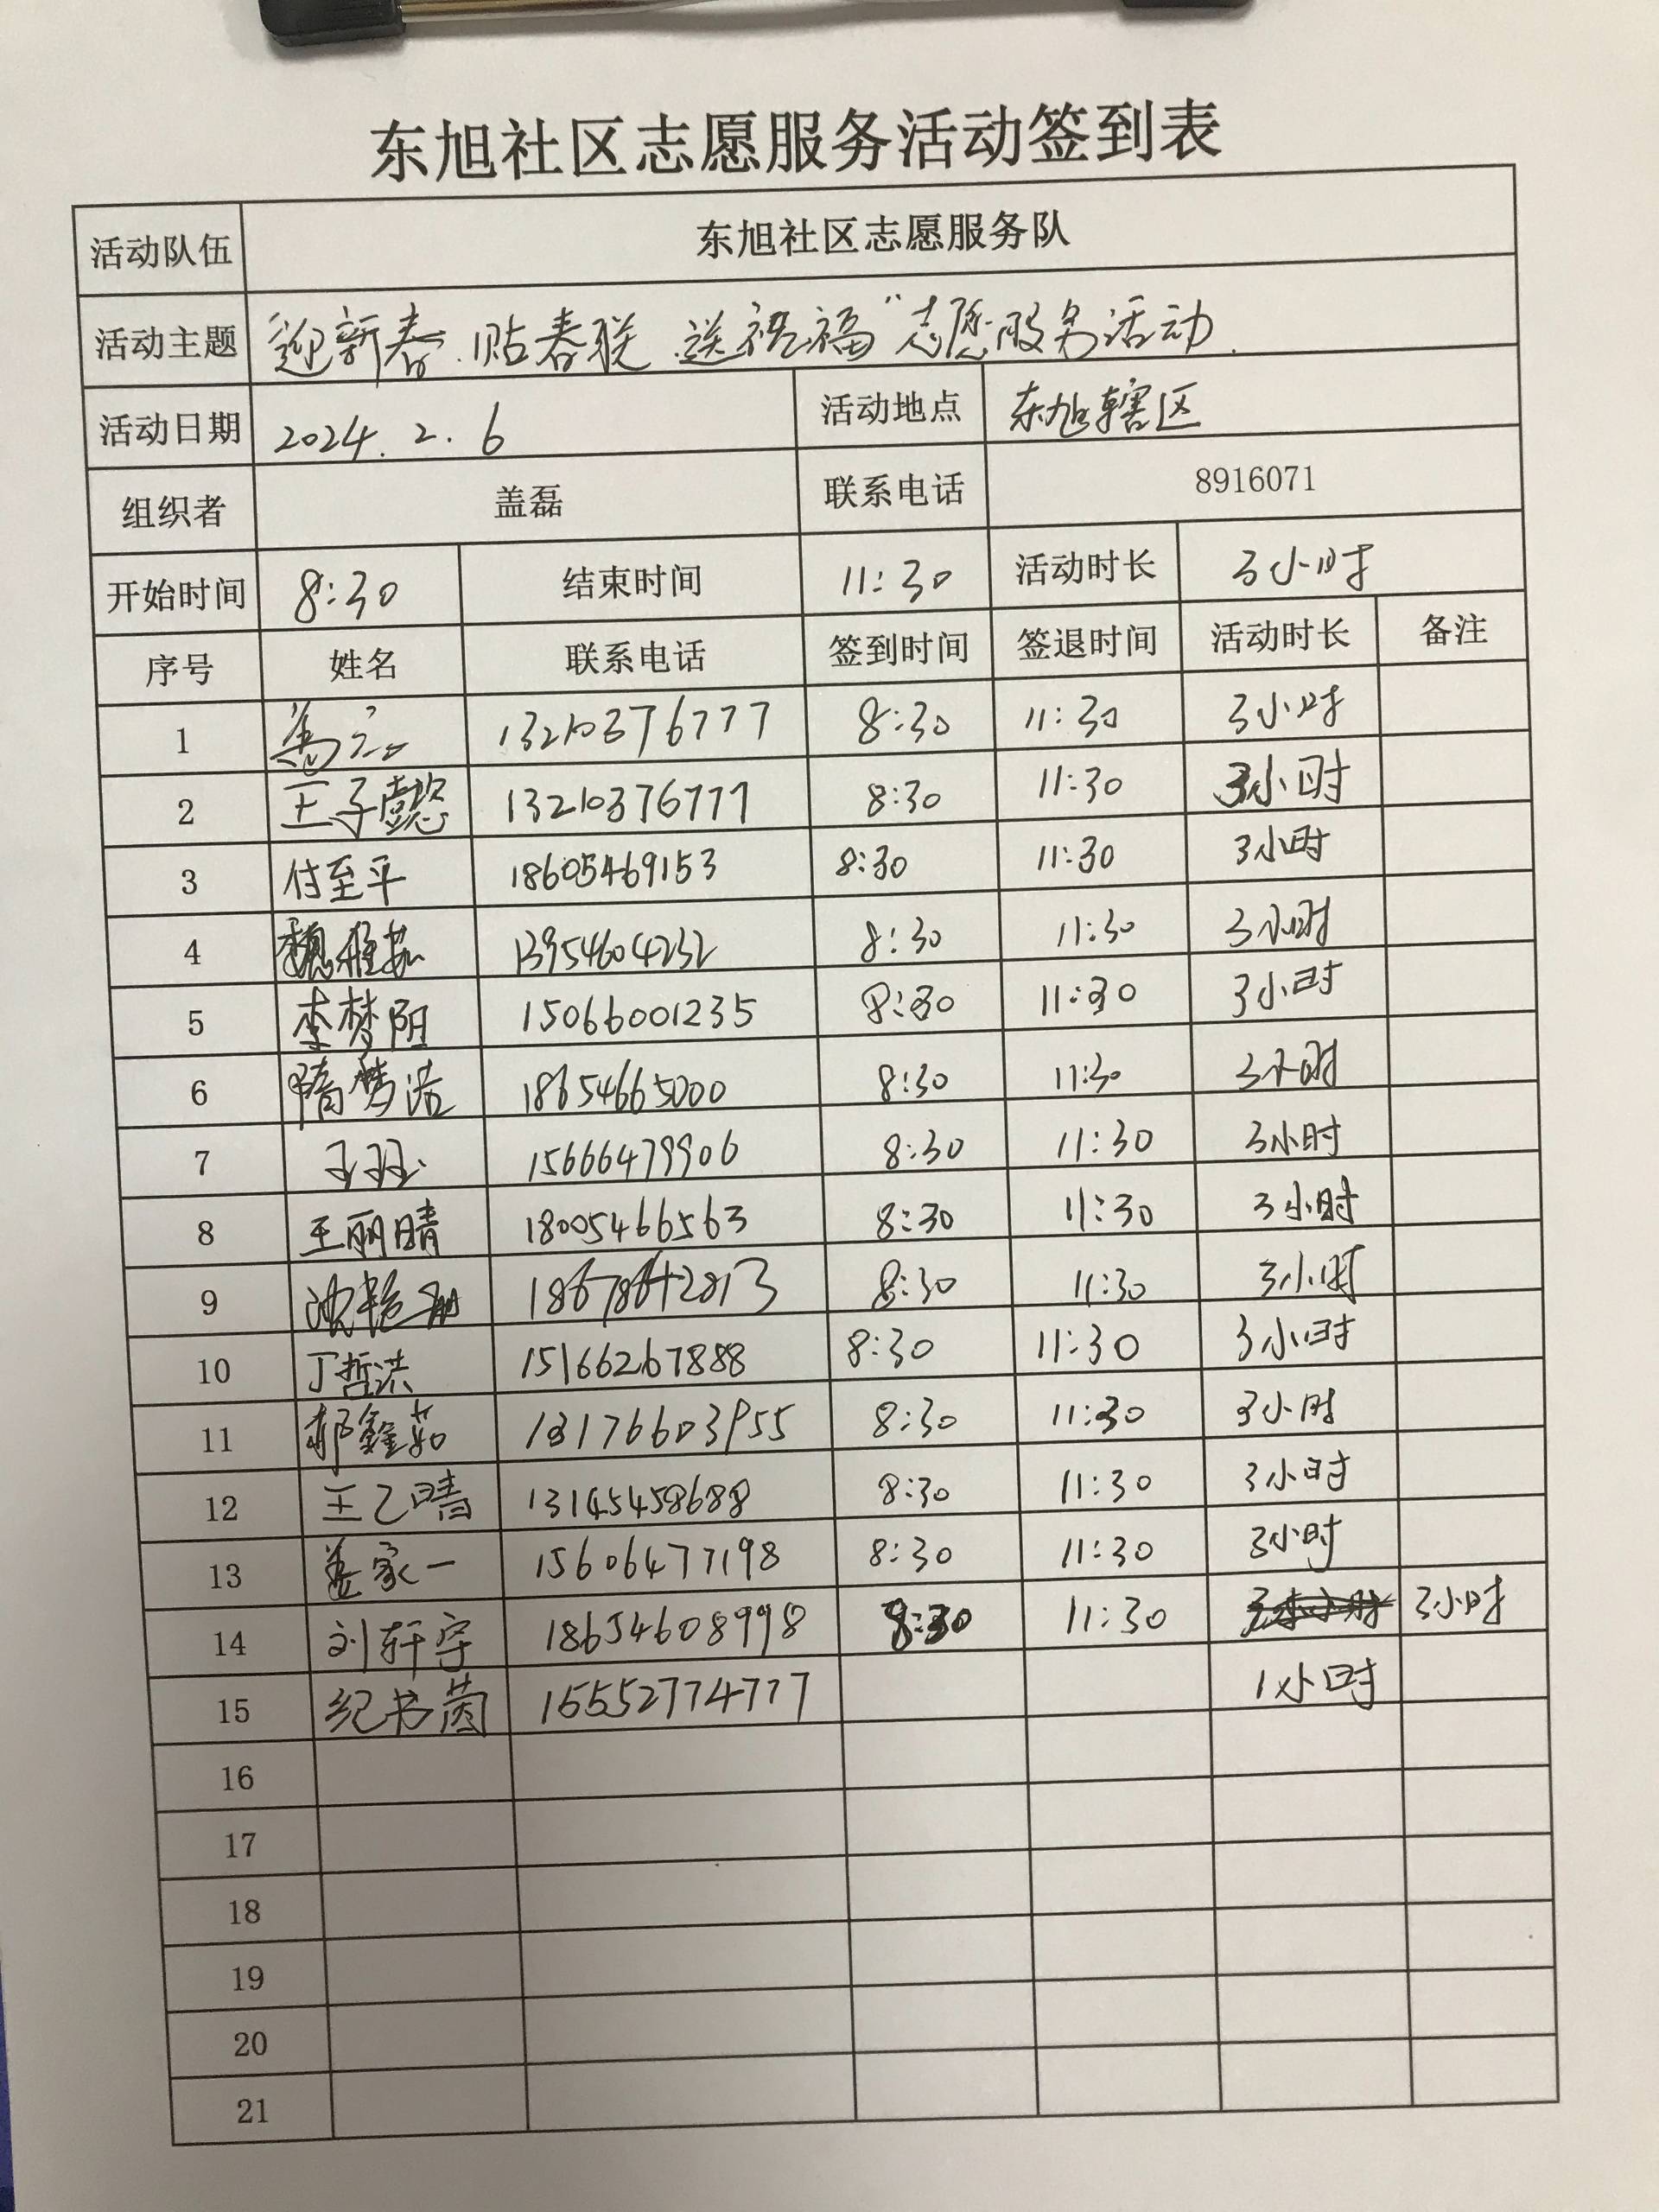 东旭社区志愿服务活动签到表
活动队伍 东旭社区志愿服务队
活动主题 迎新春.贴春联.送祝福"志愿服务活动.
活动日期 2024.2.6 活动地点 东旭辖区
组织者 盖磊 联系电话 8916071
开始时间 8:30 结束时间 11:30 活动时长 3小时
序号 姓名 联系电话 签到时间 签退时间 活动时长 备注
1 13210376777 8:30 11:30 3小时
2 王子懿 13210376777 8:30 11:30 3小时
3 付至平 18605469153 8:30 11:30 3小时
4 13954604232 8:30 11:30 3小时
5 李梦阳 15066001235 8:30 11:30 3小时
6 隋梦浩 18654665000 8:30 11:30 3小时
7 15666479906 8:30 11:30 3小时
8 王丽晴 18005466563 8:30 11:30 3小时
9 18678642813 8:30 11:30 3小时
10 丁哲洪 15166267888 8:30 11:30 3小时
11 郝鑫茹 13176603955 8:30 11:30 3小时
12 王乙晴 13145458688 8:30 11:30 3小时
13 盖家一 15606477198 8:30 11:30 3小时
14 刘轩宇 18654608998 8:30 11:30 3小时
15 纪书茵 15552774777 1小时
16
17
18
19
20
21